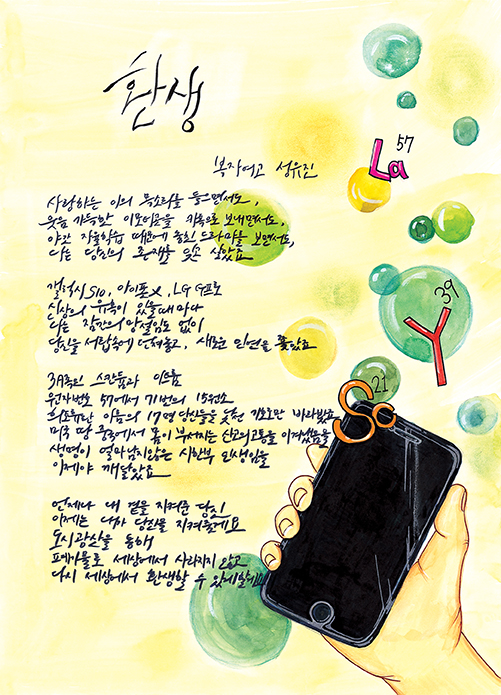 환생
복자여고 성유진
사랑하는 이의 목소리를 들으면서도,
웃음 가득한 이모티콘을 카톡으로 보내면서도,
야간 자율학습 때문에 놓친 드라마를 보면서도,
나는 당신의 존재를 잊고 살았죠
갤럭시S10, 아이폰X, LG G8로
신상의 유혹이 있을때마다
나는 잠깐의 망설임도 없이
당신을 서랍속에 던져놓고, 새로운 인연을 찾았죠
3A족인 스칸듐과 이트륨
원자번호 57에서 71번의 15원소
희소위란 이름의 17명 당신들을 잊은 기호로만 바라봤죠
미국 땅 중앙에서 몸이 부서지는 산고의고통을 이겨냈음을
생명이 얼마남지않은 시한부 인생임을
이제야 깨달았죠
언제나 내 곁을 지켜준 당신
이제는 나가 당신을 지켜줄게요
도시광산을 통해
폐기물로 세상에서 사라지지 않고
다시 세상에서 환생할 수 있게 할게요
La 57
Y 39
Sc 21